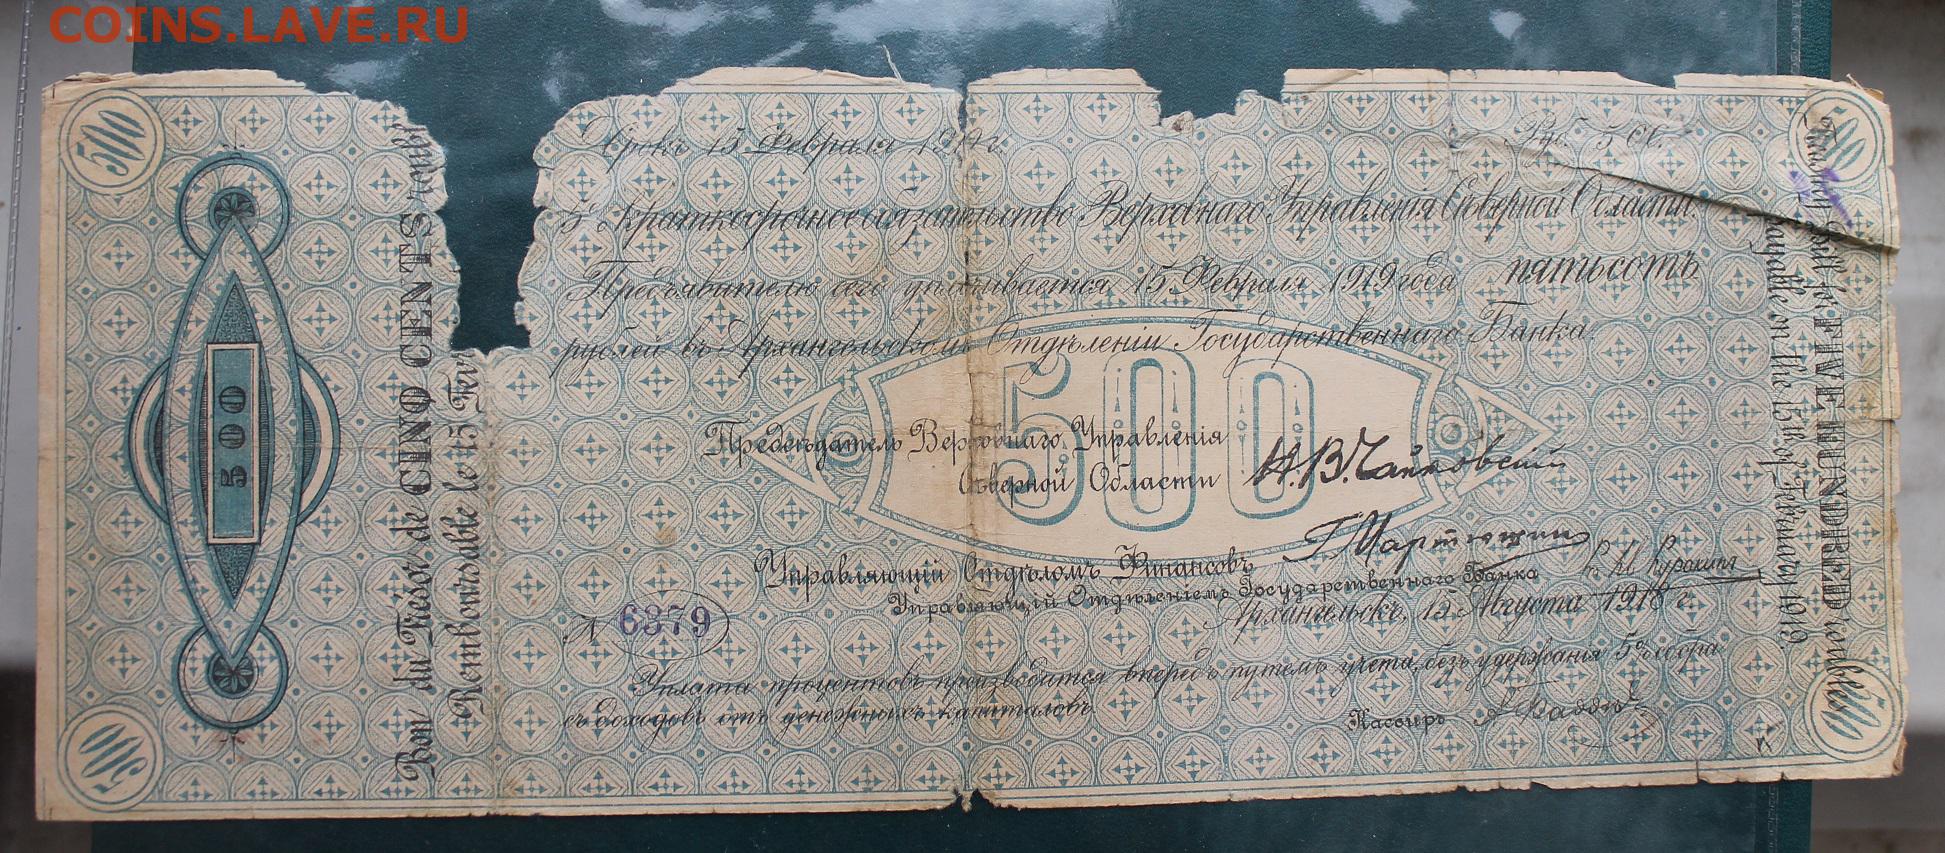 COINS.LAVE.RU
500
500
500
Bon du Trésor de CINQ CENTS roubl
Remboursable le 15 Fevr
Срокъ 15 Февраля 1919 г.
Руб. 500.
5% Краткосрочное обязательство Верховнаго Управленія Сѣверной Области.
Предъявителю сего уплачивается 15 Февраля 1919 года пятьсотъ
рублей въ Архангельскомъ Отдѣленіи Государственнаго Банка.
500
Предсѣдатель Верховнаго Управленія
Сѣверной Области Н.В.Чайковскій
Управляющій Отдѣломъ Финансовъ
Управляющій Отдѣленіемъ Государственнаго Банка
Архангельскъ, 15 Августа 1918 г.
№ 6379
Уплата процентовъ производится впередъ путемъ учета, безъ удержания 5% сбора
съ доходовъ отъ денежныхъ капиталовъ.
Кассиръ
500
500
for FIVE HUNDRED roubles
payable on the 15th of February 1919